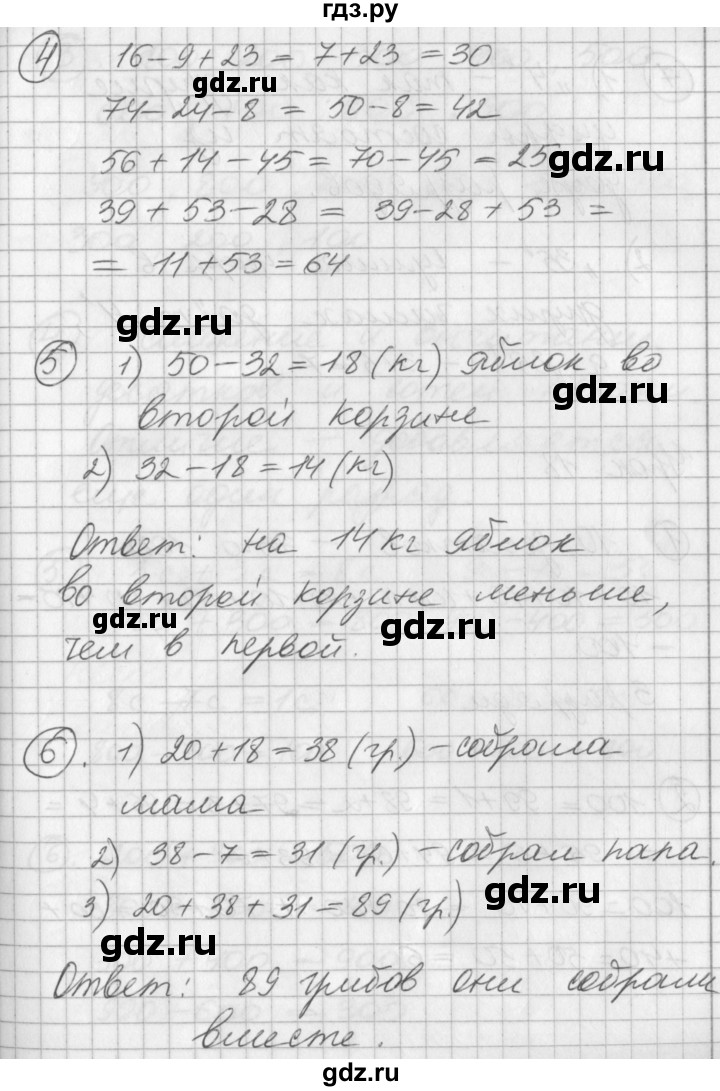 гдз.ру
④ 16-9+23 = 7+23 = 30
gdz.ru
74-24-8 = 50-8 = 42
56+14-45 = 70-45 = 25
gdz.ru
39+53-28 = 39-28+53 =
= 11+53 = 64
gdz.ru
⑤ 1) 50-32=18 (кг) яблок во
gdz.ru
второй корзине
2) 32-18=14 (кг)
Ответ: на 14 кг яблок
во второй корзине меньше,
gdz.ru
gdz.ru
чем в первой.
⑥. 1) 20+18=38 (гр.) - собрала
мама
2) 38-7=31 (гр.) - собрал папа.
3) 20+38+31=89 (гр.)
gdz.ru
gdz.ru
Ответ: 89 грибов они собрали
вместе.
gdz.ru
gdz.ru